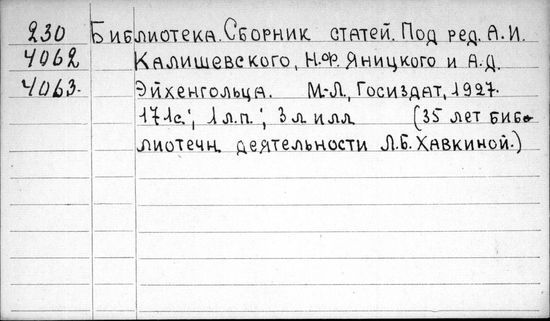 230 Библиотека. Сборник статей. Под ред. А.И.
4062 Калишевского, Н.Ф. Яницкого и А.Д.
4063. Эйхенгольца. М-Л, Госиздат, 1927.
171с; 1 л.п.; 3 л. илл (35 лет биб-
лиотечн. деятельности Л.Б. Хавкиной.)